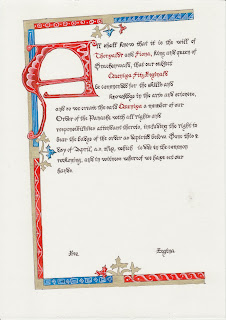 All shall know that it is the will of
and Fiona, King and Queen of
that our subject
be commended for the skills and
knowledge in the arts and sciences,
and so we create the said a member of our
Order of the Panache with all rights and
responsibilities attendant thereto, including the right to
bear the badge of the order as depicted below. Done this
day of April, a.s. in the common
reckoning, and in witness whereof we have set our
hands.
Rex Regina